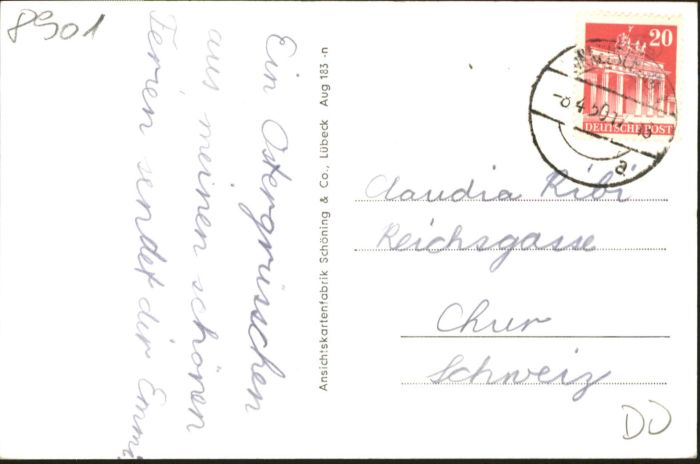 8901
Ein Ostergrüsschen
aus meinen schönen
Ferien sendet dir Emmi
Ansichtskartenfabrik Schöning & Co., Lübeck Aug 183 -n
20
DEUTSCHE POST
-8.4.50
a
Claudia Ribi
Reichsgasse
Chur
Schweiz
DO